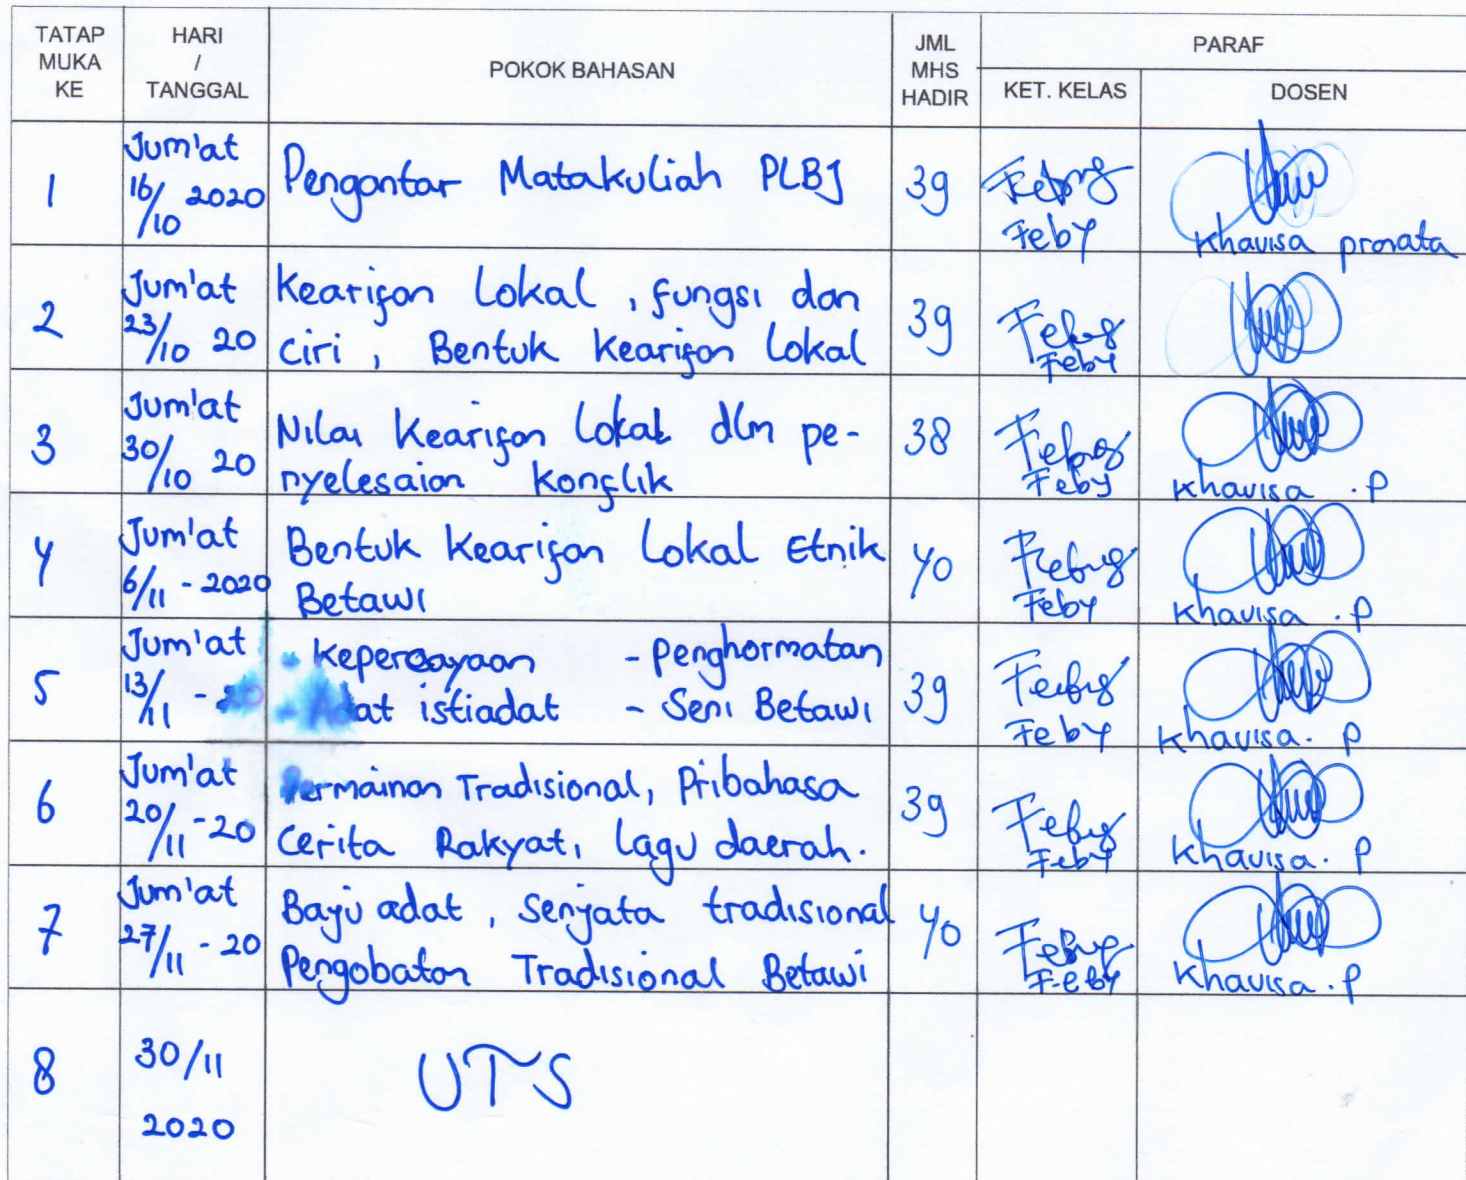 TATAP MUKA KE
HARI / TANGGAL
POKOK BAHASAN
JML MHS HADIR
PARAF
KET. KELAS
DOSEN
1
Jum'at
16/10 2020
Pengantar Matakuliah PLBJ
39
Feby
Khavisa pranata
2
Jum'at
23/10 20
Kearifan Lokal, fungsi dan
ciri, Bentuk Kearifan Lokal
39
Feby
3
Jum'at
30/10 20
Nilai Kearifan Lokal dlm pe-
nyelesaian Konflik
38
Feby
Khavisa . P
4
Jum'at
6/11 - 2020
Bentuk Kearifan Lokal Etnik
Betawi
40
Feby
Khavisa . P
5
Jum'at
13/11 - 20
- Kepercayaan - Penghormatan
- Adat istiadat - Seni Betawi
39
Feby
Khavisa. P
6
Jum'at
20/11 - 20
Permainan Tradisional, Pribahasa
Cerita Rakyat, lagu daerah.
39
Feby
Khavisa. P
7
Jum'at
27/11 - 20
Baju adat, Senjata tradisional
Pengobatan Tradisional Betawi
40
Feby
Khavisa . P
8
30/11
2020
UTS